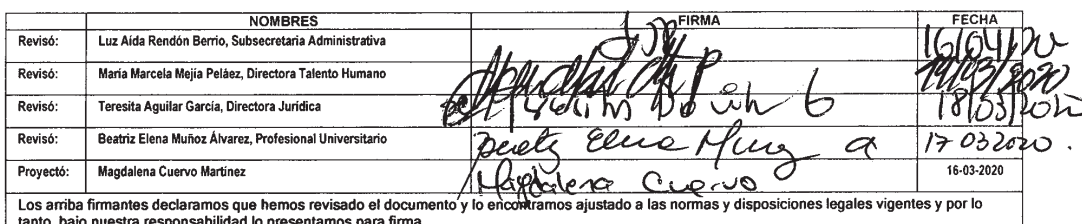 NOMBRES FIRMA FECHA
Revisó: Luz Aída Rendón Berrio, Subsecretaria Administrativa 16/04/20
Revisó: María Marcela Mejía Peláez, Directora Talento Humano 19/03/2020
Revisó: Teresita Aguilar García, Directora Jurídica 18/03/202
Revisó: Beatriz Elena Muñoz Álvarez, Profesional Universitario Beatriz Elena Muñoz A 17 032020.
Proyectó: Magdalena Cuervo Martínez Magdalena Cuervo 16-03-2020
Los arriba firmantes declaramos que hemos revisado el documento y lo encontramos ajustado a las normas y disposiciones legales vigentes y por lo
tanto, bajo nuestra responsabilidad lo presentamos para firma